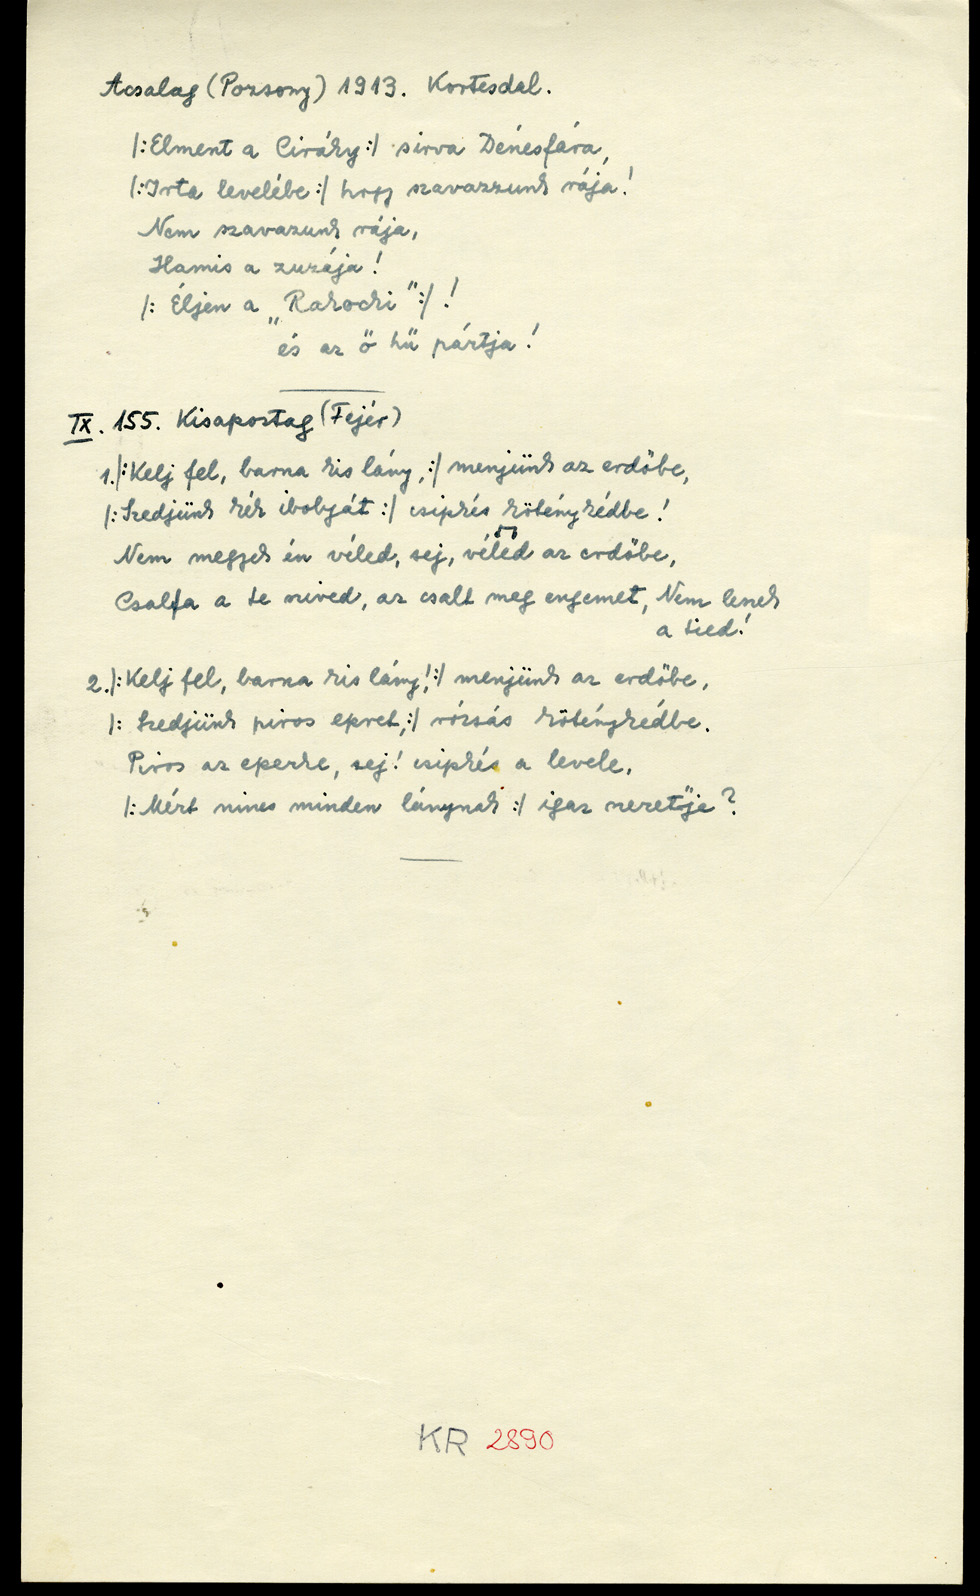 Acsalag (Pozsony) 1913. Kortesdal.
|: Elment a Ciráky :| sirva Dénesfára,
|: Irta levelébe :| hogy szavazzunk rája!
Nem szavazunk rája,
Hamis a zuzája!
|: Éljen a „Rakocki” :| !
„és az ő hű pártja!
IX. 155. Kisapostag (Fejér)
1. |: Kelj fel, barna kis lány, :| menjünk az erdőbe,
|: Szedjünk kék ibolyját :| csipkés köténykédbe!
Nem megyek én véled, sej, véled az erdőbe,
Csalfa a te szived, az csalt meg engemet, Nem leszek
a tied!
2. |: Kelj fel, barna kis lány! :| menjünk az erdőbe,
|: Szedjünk piros epret, :| rózsás köténykédbe.
Piros az eperke, sej! csipkés a levele,
|: Mért nincs minden lánynak :| igaz szeretője?
KR 2890